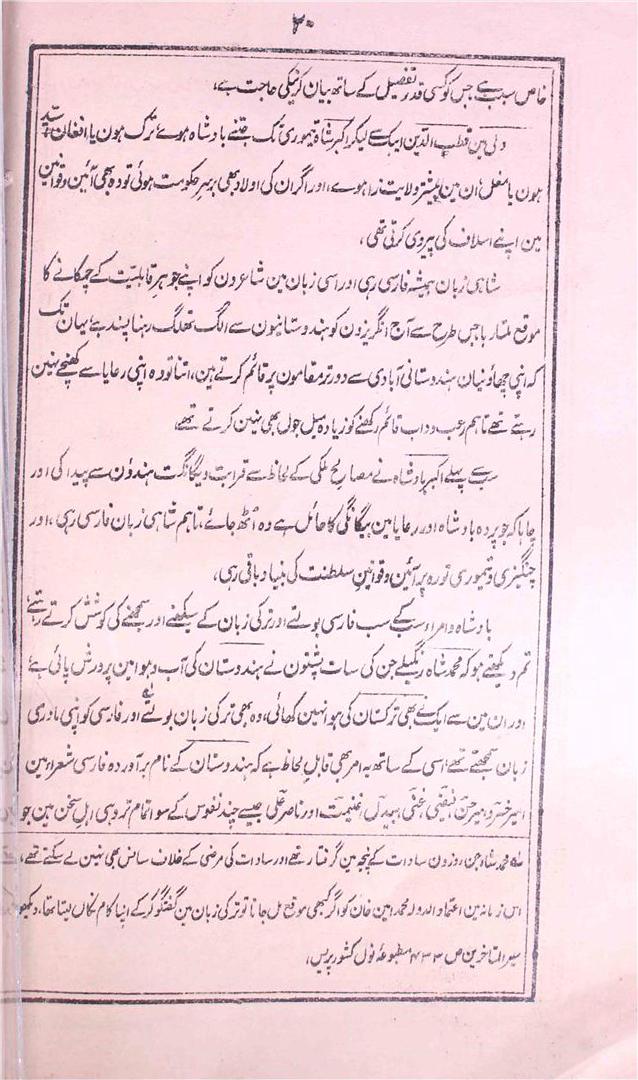 ۲۰
خاص سبب ہے، جس کو کسی قدر تفصیل کے ساتھ بیان کرنیکی حاجت ہے،
دلی مین قطب الدین ایبک سے لیکر اکبر شاہ تیموری تک جتنے بادشاہ ہوئے ترک ہون یا افغان سید
ہون یا مغل ان مین بیشتر ولایت زا ہوے، اور اگر ان کی اولاد بھی برسر حکومت ہوئی تو وہ بھی آئین و قوانین
مین اپنے اسلاف کی پیروی کرتی تھی،
شاہی زبان ہمیشہ فارسی رہی اور اسی زبان مین شاعرون کو اپنے جوہر قابلیت کے چمکانے کا
موقع ملتا رہا جس طرح سے آج انگریزون کو ہندوستانیون سے الگ تھلگ رہنا پسند ہے یہان تک
کہ اپنی چھاؤنیان ہندوستانی آبادی سے دور تر مقامون پر قائم کرتے ہین، اتنا تو وہ اپنی رعایا سے کھنچے نہین
رہتے تھے تاہم رعب و داب قائم رکھنے کو زیادہ میل جول بھی نہین کرتے تھے،
سب سے پہلے اکبر بادشاہ نے مصالح ملکی کے لحاظ سے قرابت و یگانگت ہندوؤن سے پیدا کی اور
چاہا کہ جو پردہ بادشاہ اور رعایا مین بیگانگی کا حائل ہے وہ اٹھ جائے، تاہم شاہی زبان فارسی رہی، اور
چنگیزی و تیموری تورہ پر آئین و قوانین سلطنت کی بنیاد باقی رہی،
بادشاہ و امراء سب کے سب فارسی بولتے اور ترکی زبان کے سیکھنے اور سمجھنے کی کوشش کرتے رہتے
تم دیکھتے ہو کہ محمد شاہ رنگیلے جن کی سات پشتون نے ہندوستان کی آب و ہوا مین پرورش پائی ہے
اور ان مین سے ایک نے بھی ترکستان کی ہوا نہین کھائی، وہ بھی ترکی زبان بولتے اور فارسی کو اپنی مادری
زبان سمجھتے تھے، اسی کے ساتھ یہ امر بھی قابل لحاظ ہے کہ ہندوستان کے نام برآوردہ فارسی شعراء مین
امیر خسرو، میر حسن، فیضی، غنی، بیدل، غنیمت اور ناصر علی جیسے چند نفوس کے سوا تمام تر وہی اہل سخن ہین جو
لہ محمد شاہ جن روزون سادات کے پنجہ مین گرفتار تھے اور سادات کی مرضی کے خلاف سانس بھی نہین لے سکتے تھے،
اس زمانہ مین اعتماد الدولہ محمد امین خان کو اگر کبھی موقع مل جاتا تو ترکی زبان مین گفتگو کر کے اپنا کام نکال لیتا تھا، دیکھو
سیر المتاخرین ص ۴۳۳ مطبوعہ نول کشور پریس،